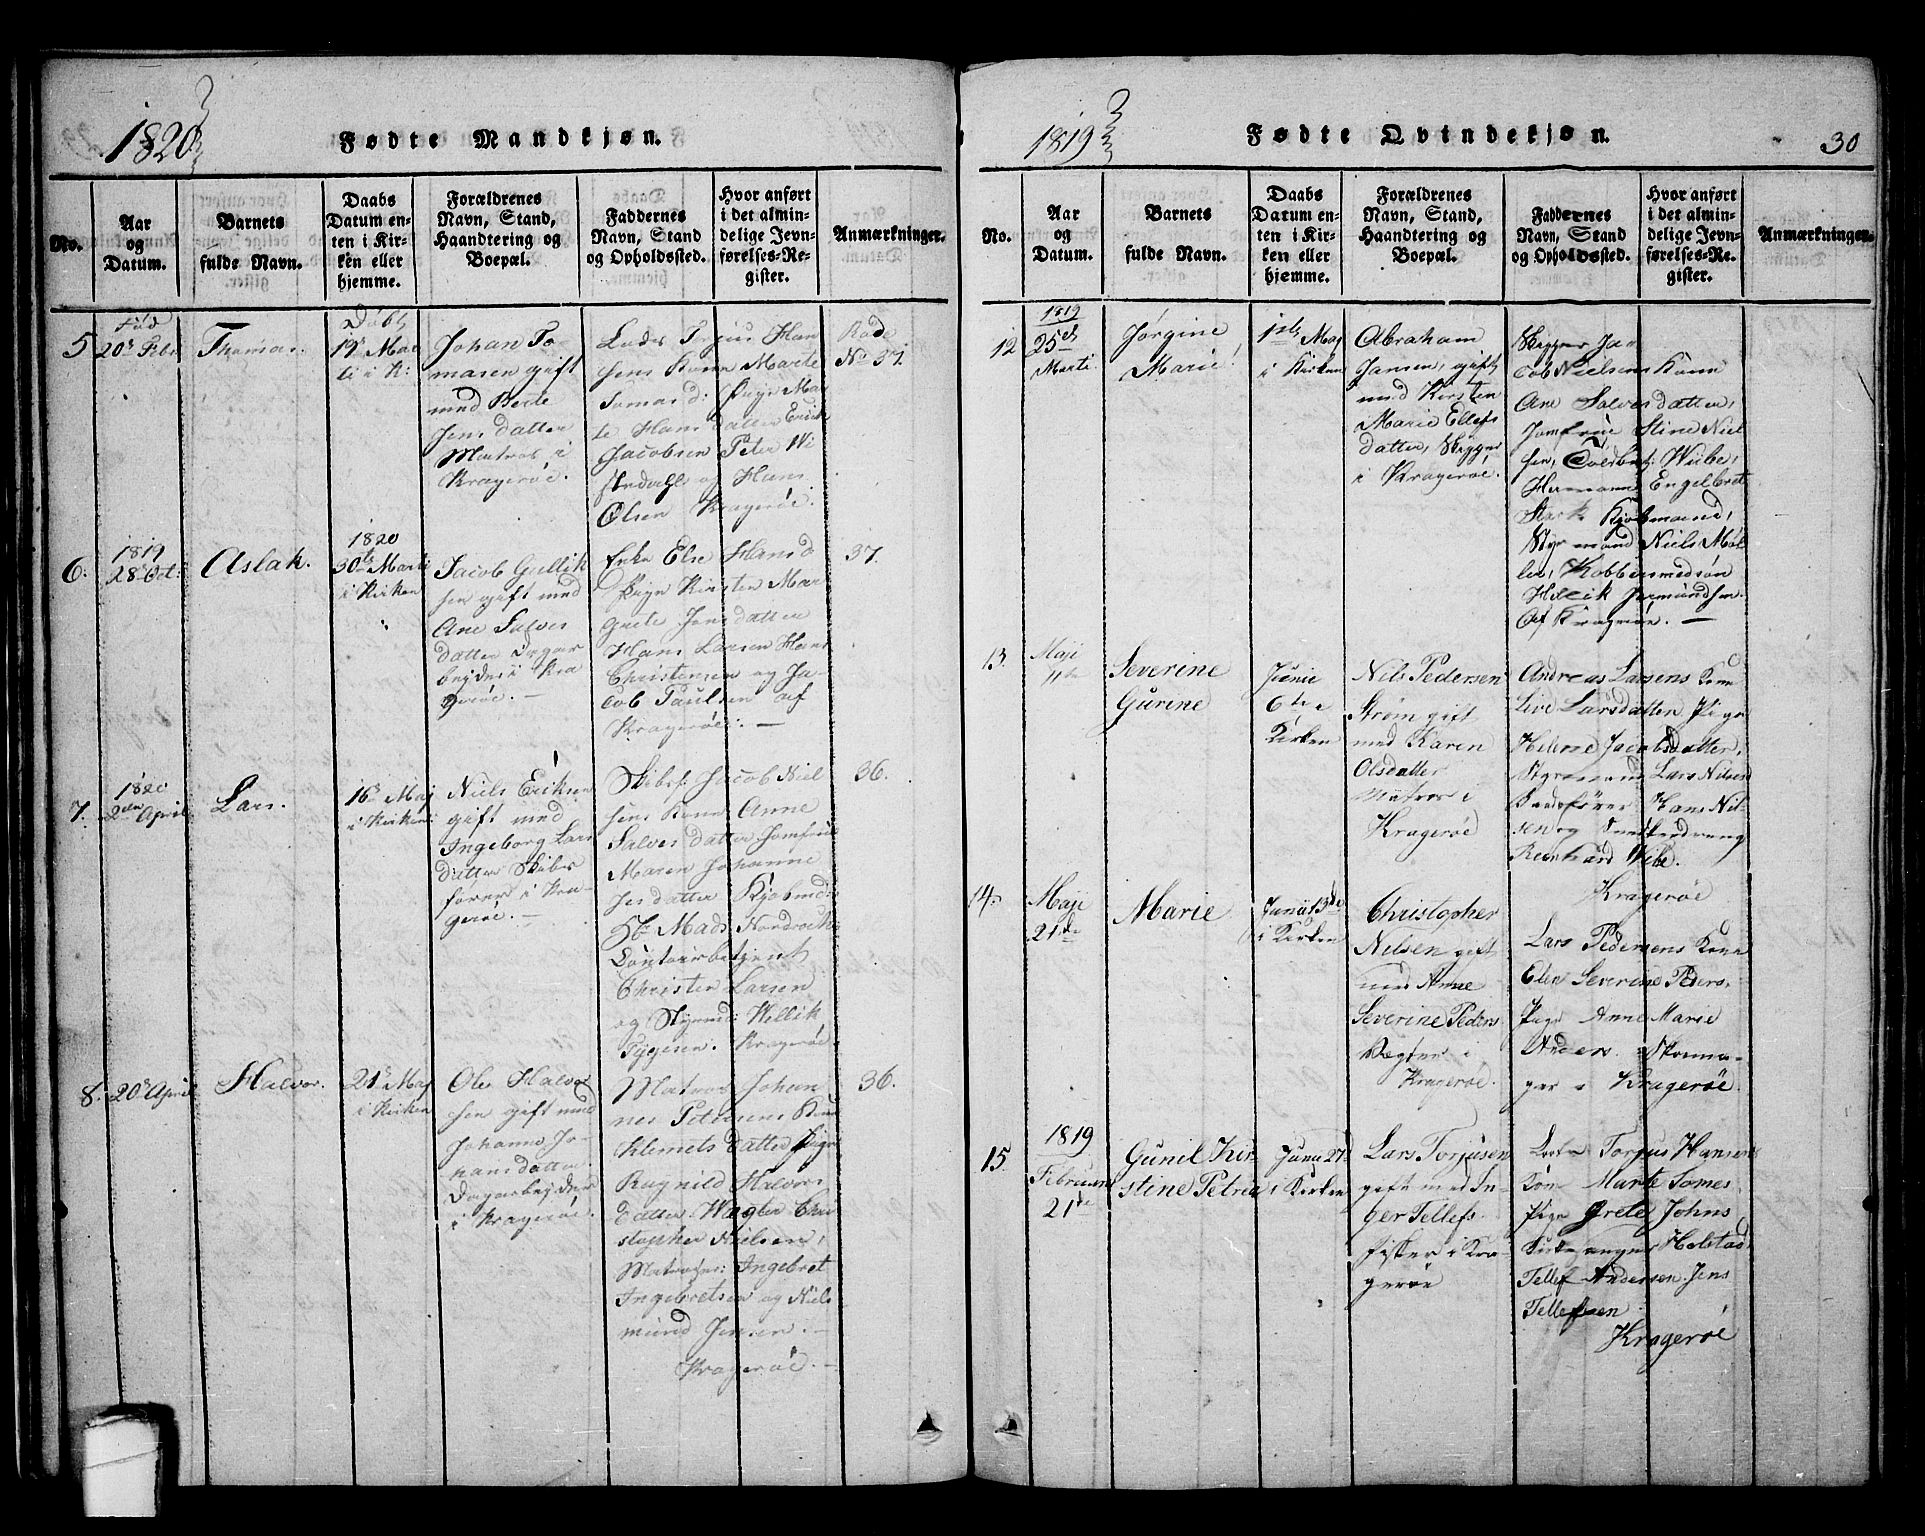 1820
Fødte Mandkjøn.
No.
Aar
og
Datum.
Barnets
fulde Navn.
Daabs
Datum en-
ten i Kir-
ken eller
hjemme.
Forældrenes
Navn, Stand,
Haandtering og
Boepæl.
Faddernes
Navn, Stand
og Opholdssted.
Hvor anført
i det almin-
delige Jevn-
førelses-Re-
gister.
Anmærkninger.
5
Fød
20de Febr
Thomas.
Døbt
19de Mar
ti i K:
Johan To-
masen gift
med Berte
Jens datter
Matros i
Kragerøe.
Lods Terjus Han
sens Kone Marte
Tomasd: Pige Mar
te Hans datter Erich
Jacobsen Peter Wi
og Hans
Olsen Kragerøe.
No 37.
6.
1819
28de Oct:
Aslak.
1820
30te Marti
i Kirken
Jacob Gullik
sen gift med
Ane Salves
datter Dagar
beyder i Kra
gerøe. —
Enke Else Hansd
Pige Kirsten Mar
grete Jensdatter
Hans Larsen Hans
Christensen og Ja-
cob Paulsen af
Kragerøe. —
37.
7.
1820
2den April
Lars.
16de Maj
i Kirken
Niels Eriksen
gift med
Ingeborg Lars
datter Skibs
fører i Kra-
gerøe. —
Skibsf: Jacob Niel
sens Kone Anne
Salves datter Jomfrue
Maren Johanne
Jesdatter Kjøbmd:
Sr Mads
Contoirbetjent
Christen Larsen
og Styrmd: Wellik
Kragerøe
36.
8.
20de April
Halvor.
21de Maj
i Kirken
Ole Halvor
sen gift med
Johanne Jo-
hansdatter
Dagarbejder
i Kragerøe.
Matros Johan
nes Petersens Kone
Klemets datter Pige
Ragnild Halvors
datter Wægter Chri
stopher Nielsen,
Matroser: Ingebret
Ingebretsen og Niels
mund Jensen. —
Kragerøe. —
36.
1819
Fødte Qvindekjøn.
30
No.
Aar
og
Datum.
Barnets
fulde Navn.
Daabs
Datum en-
ten i Kir-
ken eller
hjemme.
Forældrenes
Navn, Stand,
Haandtering og
Boepæl.
Faddernes
Navn, Stand
og Opholdssted.
Hvor anført
i det almin-
delige Jevn-
førelses-Re-
gister.
Anmærkninger.
12
1819
25de
Marti.
Jørgine
Marie
1ste Maj
i Kirken
Abraham
Jansen, gift
med Kirsten
Marie Ellefs
datter, Skipper
i Kragerøe.
Skipper Ja-
cob Nielsens Kone
Ane Salvesdatter,
Jomfrue Stine Niel
sen, Wiibe,
Hermann Engelbret
Stark Kjøbmænd,
Styrmand Niels Møl
ler, Kobbersmedsøn
af Kragerøe. —
13.
Maji
11te
Severine
Gurine
Junie
6te i
Kirken
Nils Pedersen
Strøm gift
med Karen
Olsdatter
Matros i
Kragerøe
Andreas Larsens Kone
Live Larsdatter Pige
Helene Jacobsdatter,
Styrmand Lars Nilsen
Hans Nil-
sen og Snedkerdreng
Reinhard Wibe.
Kragerøe
14.
Maji
21de
Marie
Junii 13de
i Kirken
Christopher
Nilsen gift
med Anne
Severine Peders.
Vægter i
Kragerøe.
Lars Pedersens Kone
Elen Severine Peders,
Pige Anne Marie
Anders. Skoma-
ger i Kragerøe.
15.
1819
Februari
21de
Gunil Kir
stine Petrea
Junii 27de
i Kirken
Lars Torjusen
gift med In
ger Tellefs.
Fisker i Kra
gerøe
Lods Torgus Hansens
Kone Marte Tomes,
Pige Grete Johns,
Kirkesanger Holstad
Tellef Andersen, Jens
Tellefsen
Kragerøe